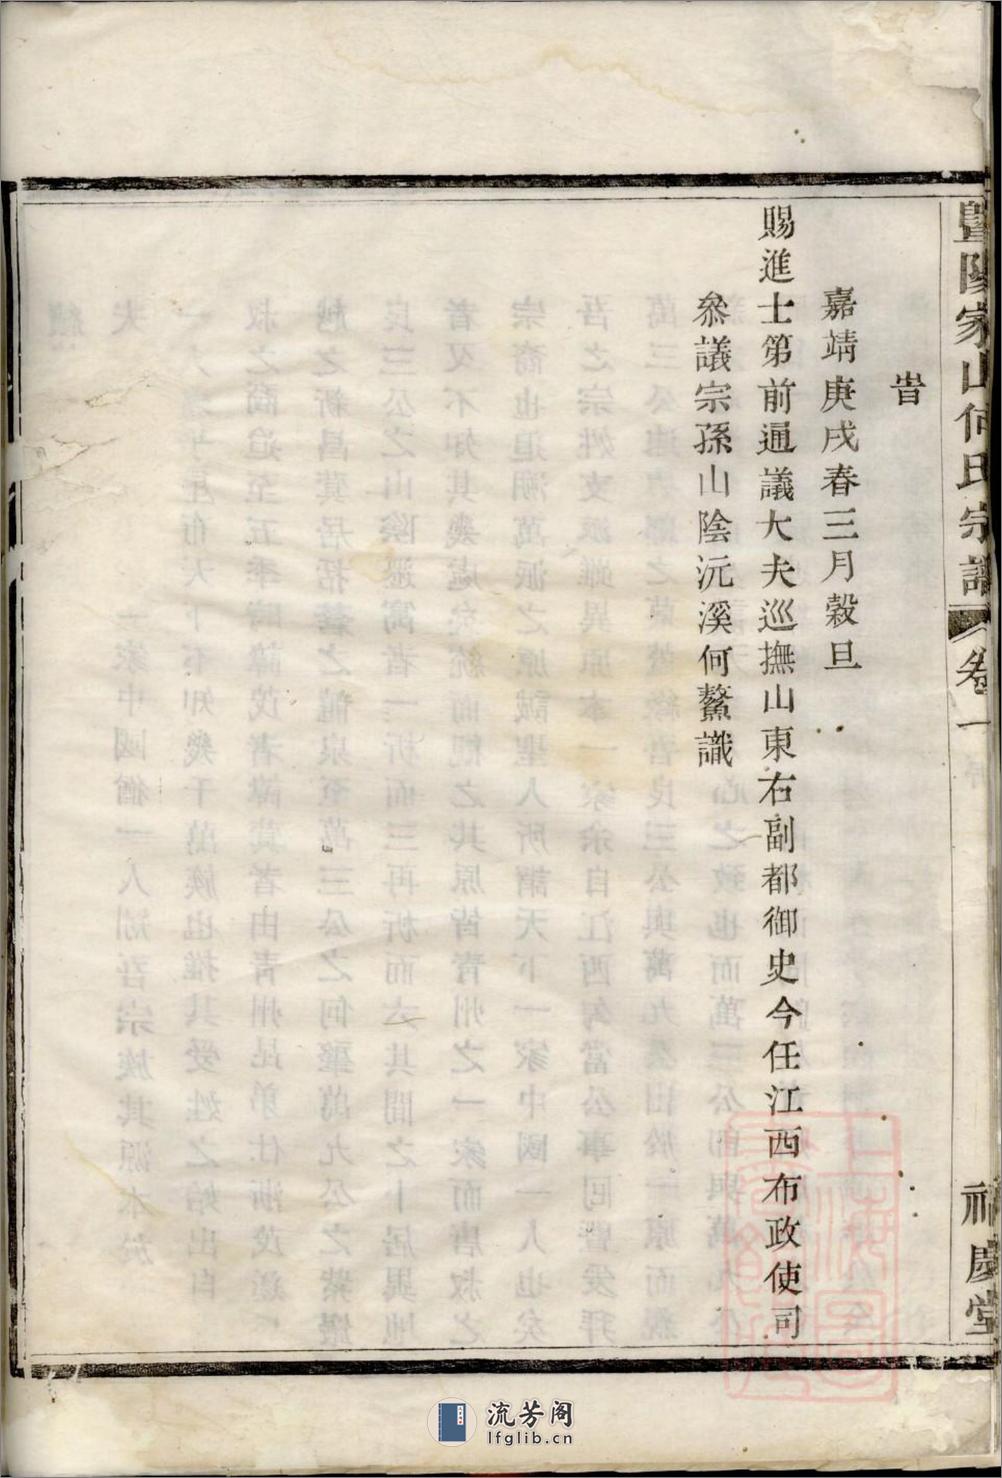 暨陽家山何氏宗譜
卷一
福慶堂
旹
嘉靖庚戌春三月穀旦
賜進士第前通議大夫巡撫山東右副都御史今任江西布政使司
叅議宗孫山陰沅溪何鰲識
流芳阁
lfglib.cn